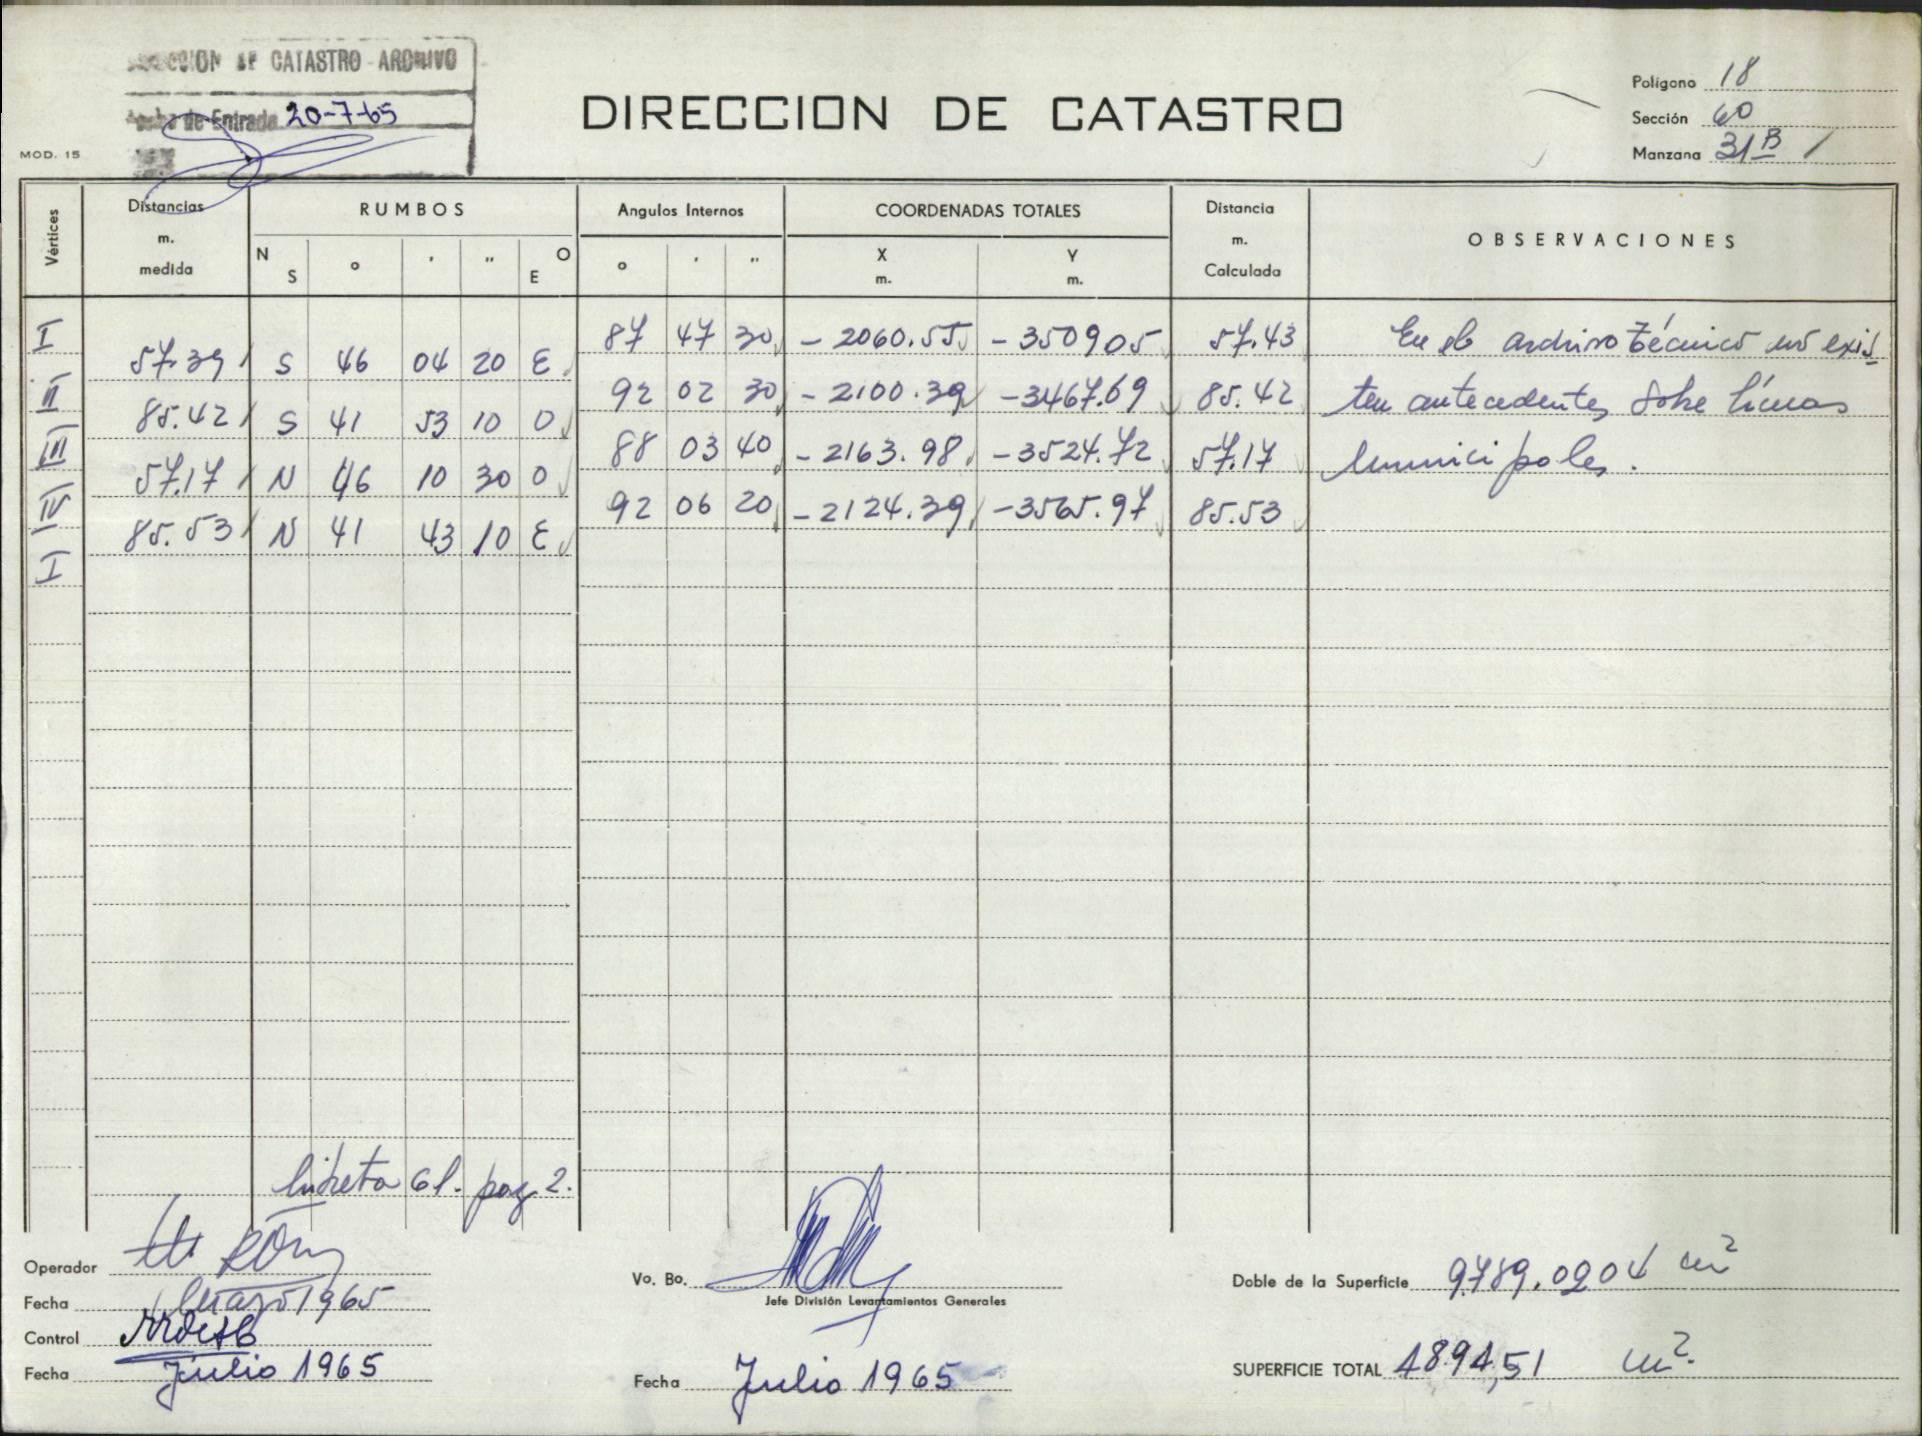 DIRECCION DE CATASTRO - ARCHIVO
Fecha de Entrada 20-7-65
MOD. 15
DIRECCION DE CATASTRO
Polígono 18
Sección 60
Manzana 31B /
Vértices
Distancias m. medida
RUMBOS
N S ° ' " O E
Angulos Internos
° ' "
COORDENADAS TOTALES
X m. Y m.
Distancia m. Calculada
OBSERVACIONES
I 87 47 30 - 2060.55 - 350905 57.43 En el archivo técnico no exis-
57.39 S 46 04 20 E
II 92 02 30 - 2100.39 - 3467.69 85.42 ten antecedentes sobre líneas
85.42 S 41 53 10 O
III 88 03 40 - 2163.98 - 3524.72 57.17 municipales.
57.17 N 46 10 30 O
IV 92 06 20 - 2124.39 - 3565.97 85.53
85.53 N 41 43 10 E
I
libreta 61. pag 2.
Operador
Fecha 1965
Control
Fecha Julio 1965
Vo. Bo.
Jefe División Levantamientos Generales
Fecha Julio 1965
Doble de la Superficie 9789.0204 m²
SUPERFICIE TOTAL 4894,51 m²